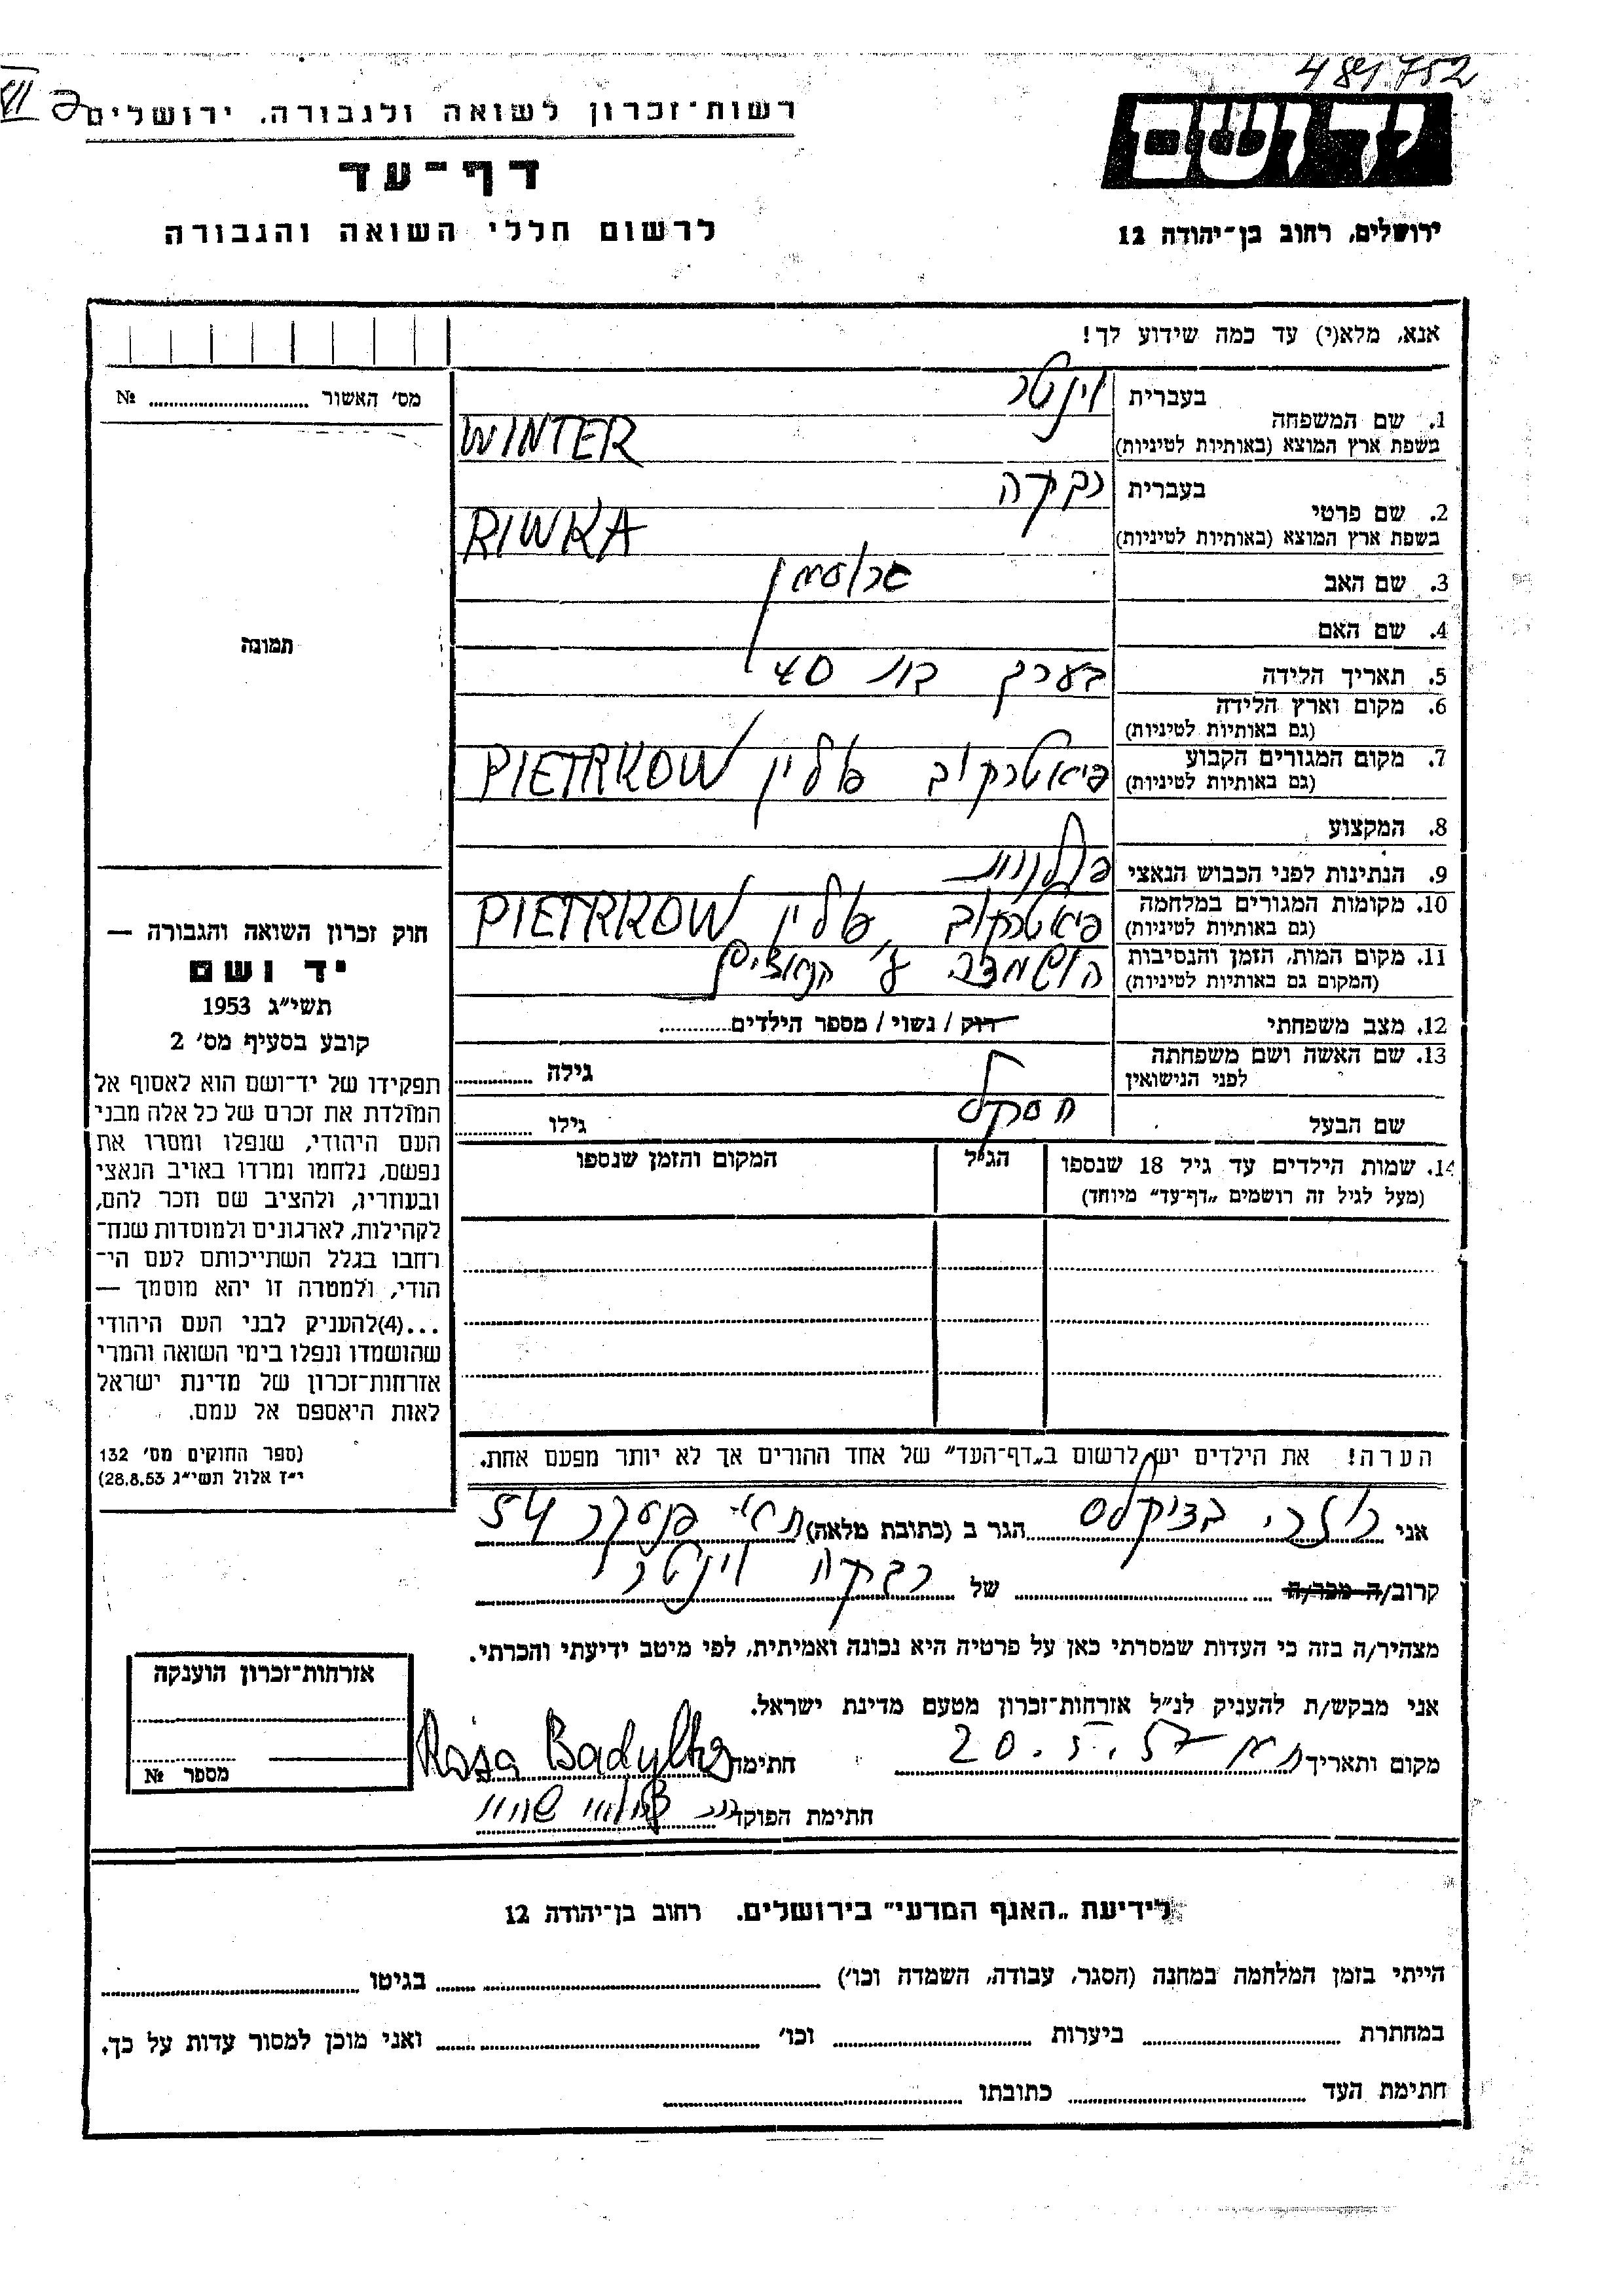 489752
רשות־זכרון לשואה ולגבורה, ירושלים
דף־עד
לרשום חללי השואה והגבורה
יד ושם
ירושלים, רחוב בן־יהודה 12
אנא, מלא(י) עד כמה שידוע לך!
מס׳ האשור № 
1. שם המשפחה
בעברית וינטר
בשפת ארץ המוצא (באותיות לטיניות) WINTER
2. שם פרטי
בעברית רבקה
בשפת ארץ המוצא (באותיות לטיניות) RIWKA
3. שם האב
4. שם האם
5. תאריך הלידה בערך בת 40
6. מקום וארץ הלידה
(גם באותיות לטיניות)
7. מקום המגורים הקבוע
(גם באותיות לטיניות) פיאטרקוב פולין PIETRKOW
8. המקצוע
9. הנתינות לפני הכבוש הנאצי פולנית
10. מקומות המגורים במלחמה
(גם באותיות לטיניות) פיאטרקוב פולין PIETRKOW
11. מקום המות, הזמן והנסיבות
(המקום גם באותיות לטיניות) הושמדה ע״י הנאצים
12. מצב משפחתי רוק / נשוי / מספר הילדים
13. שם האשה ושם משפחתה
לפני הנישואין גילה
שם הבעל חסקל גילו
14. שמות הילדים עד גיל 18 שנספו הגיל המקום והזמן שנספו
(מעל לגיל זה רושמים „דף־עד״ מיוחד)
תמונה
חוק זכרון השואה והגבורה —
יד ושם
תשי״ג 1953
קובע בסעיף מס׳ 2
תפקידו של יד־ושם הוא לאסוף אל
המולדת את זכרם של כל אלה מבני
העם היהודי, שנפלו ומסרו את
נפשם, נלחמו ומרדו באויב הנאצי
ובעוזריו, ולהציב שם וזכר להם,
לקהילות, לארגונים ולמוסדות שנח־
רחבו בגלל השתייכותם לעם הי־
הודי, ולמטרה זו יהא מוסמך —
...(4)להעניק לבני העם היהודי
שהושמדו ונפלו בימי השואה והמרי
אזרחות־זכרון של מדינת ישראל
לאות היאספם אל עמם.
(ספר החוקים מס׳ 132
י״ז אלול תשי״ג 28.8.53)
הערה! את הילדים יש לרשום ב„דף־העד״ של אחד ההורים אך לא יותר מפעם אחת.
אני הגר ב (כתובת מלאה) 54
קרוב/ה מכר/ה של רבקה וינטר
מצהיר/ה בזה כי העדות שמסרתי כאן על פרטיה היא נכונה ואמיתית, לפי מיטב ידיעתי והכרתי.
אני מבקש/ת להעניק לנ״ל אזרחות־זכרון מטעם מדינת ישראל.
מקום ותאריך ת״א 20.V.57 חתימה Rosa
חתימת הפוקד
אזרחות־זכרון הוענקה
מספר №
לידיעת „האגף המדעי״ בירושלים, רחוב בן־יהודה 12
הייתי בזמן המלחמה במחנה (הסגר, עבודה, השמדה וכו׳) בגיטו
במחתרת ביערות וכו׳ ואני מוכן למסור עדות על כך.
חתימת העד כתובתו